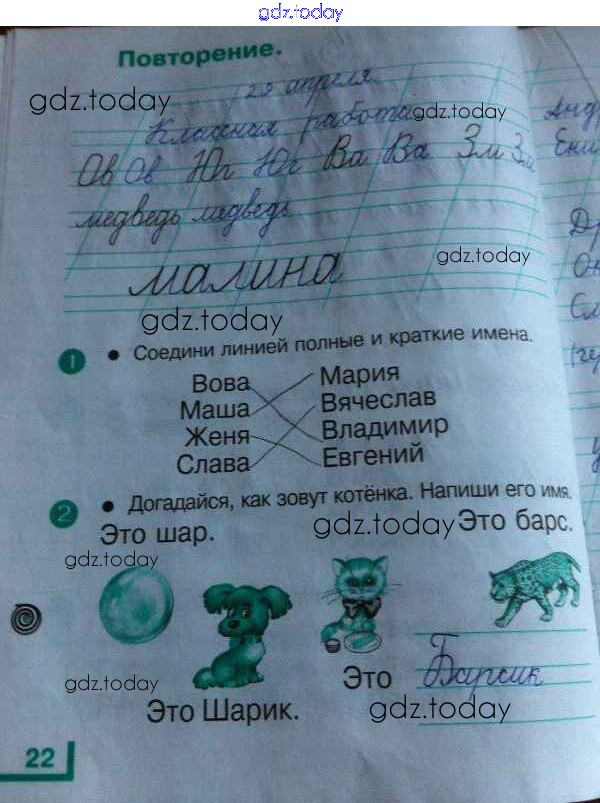 gdz.today
Повторение.
29 апреля
gdz.today
Классная работа
gdz.today
Ов Ов Юг Юг Ва Ва Зм Зм
медведь медведь
gdz.today
малина
gdz.today
1 • Соедини линией полные и краткие имена.
Вова Мария
Маша Вячеслав
Женя Владимир
Слава Евгений
2 • Догадайся, как зовут котёнка. Напиши его имя.
Это шар. gdz.today Это барс.
gdz.today
gdz.today
Это Барсик
Это Шарик. gdz.today
22